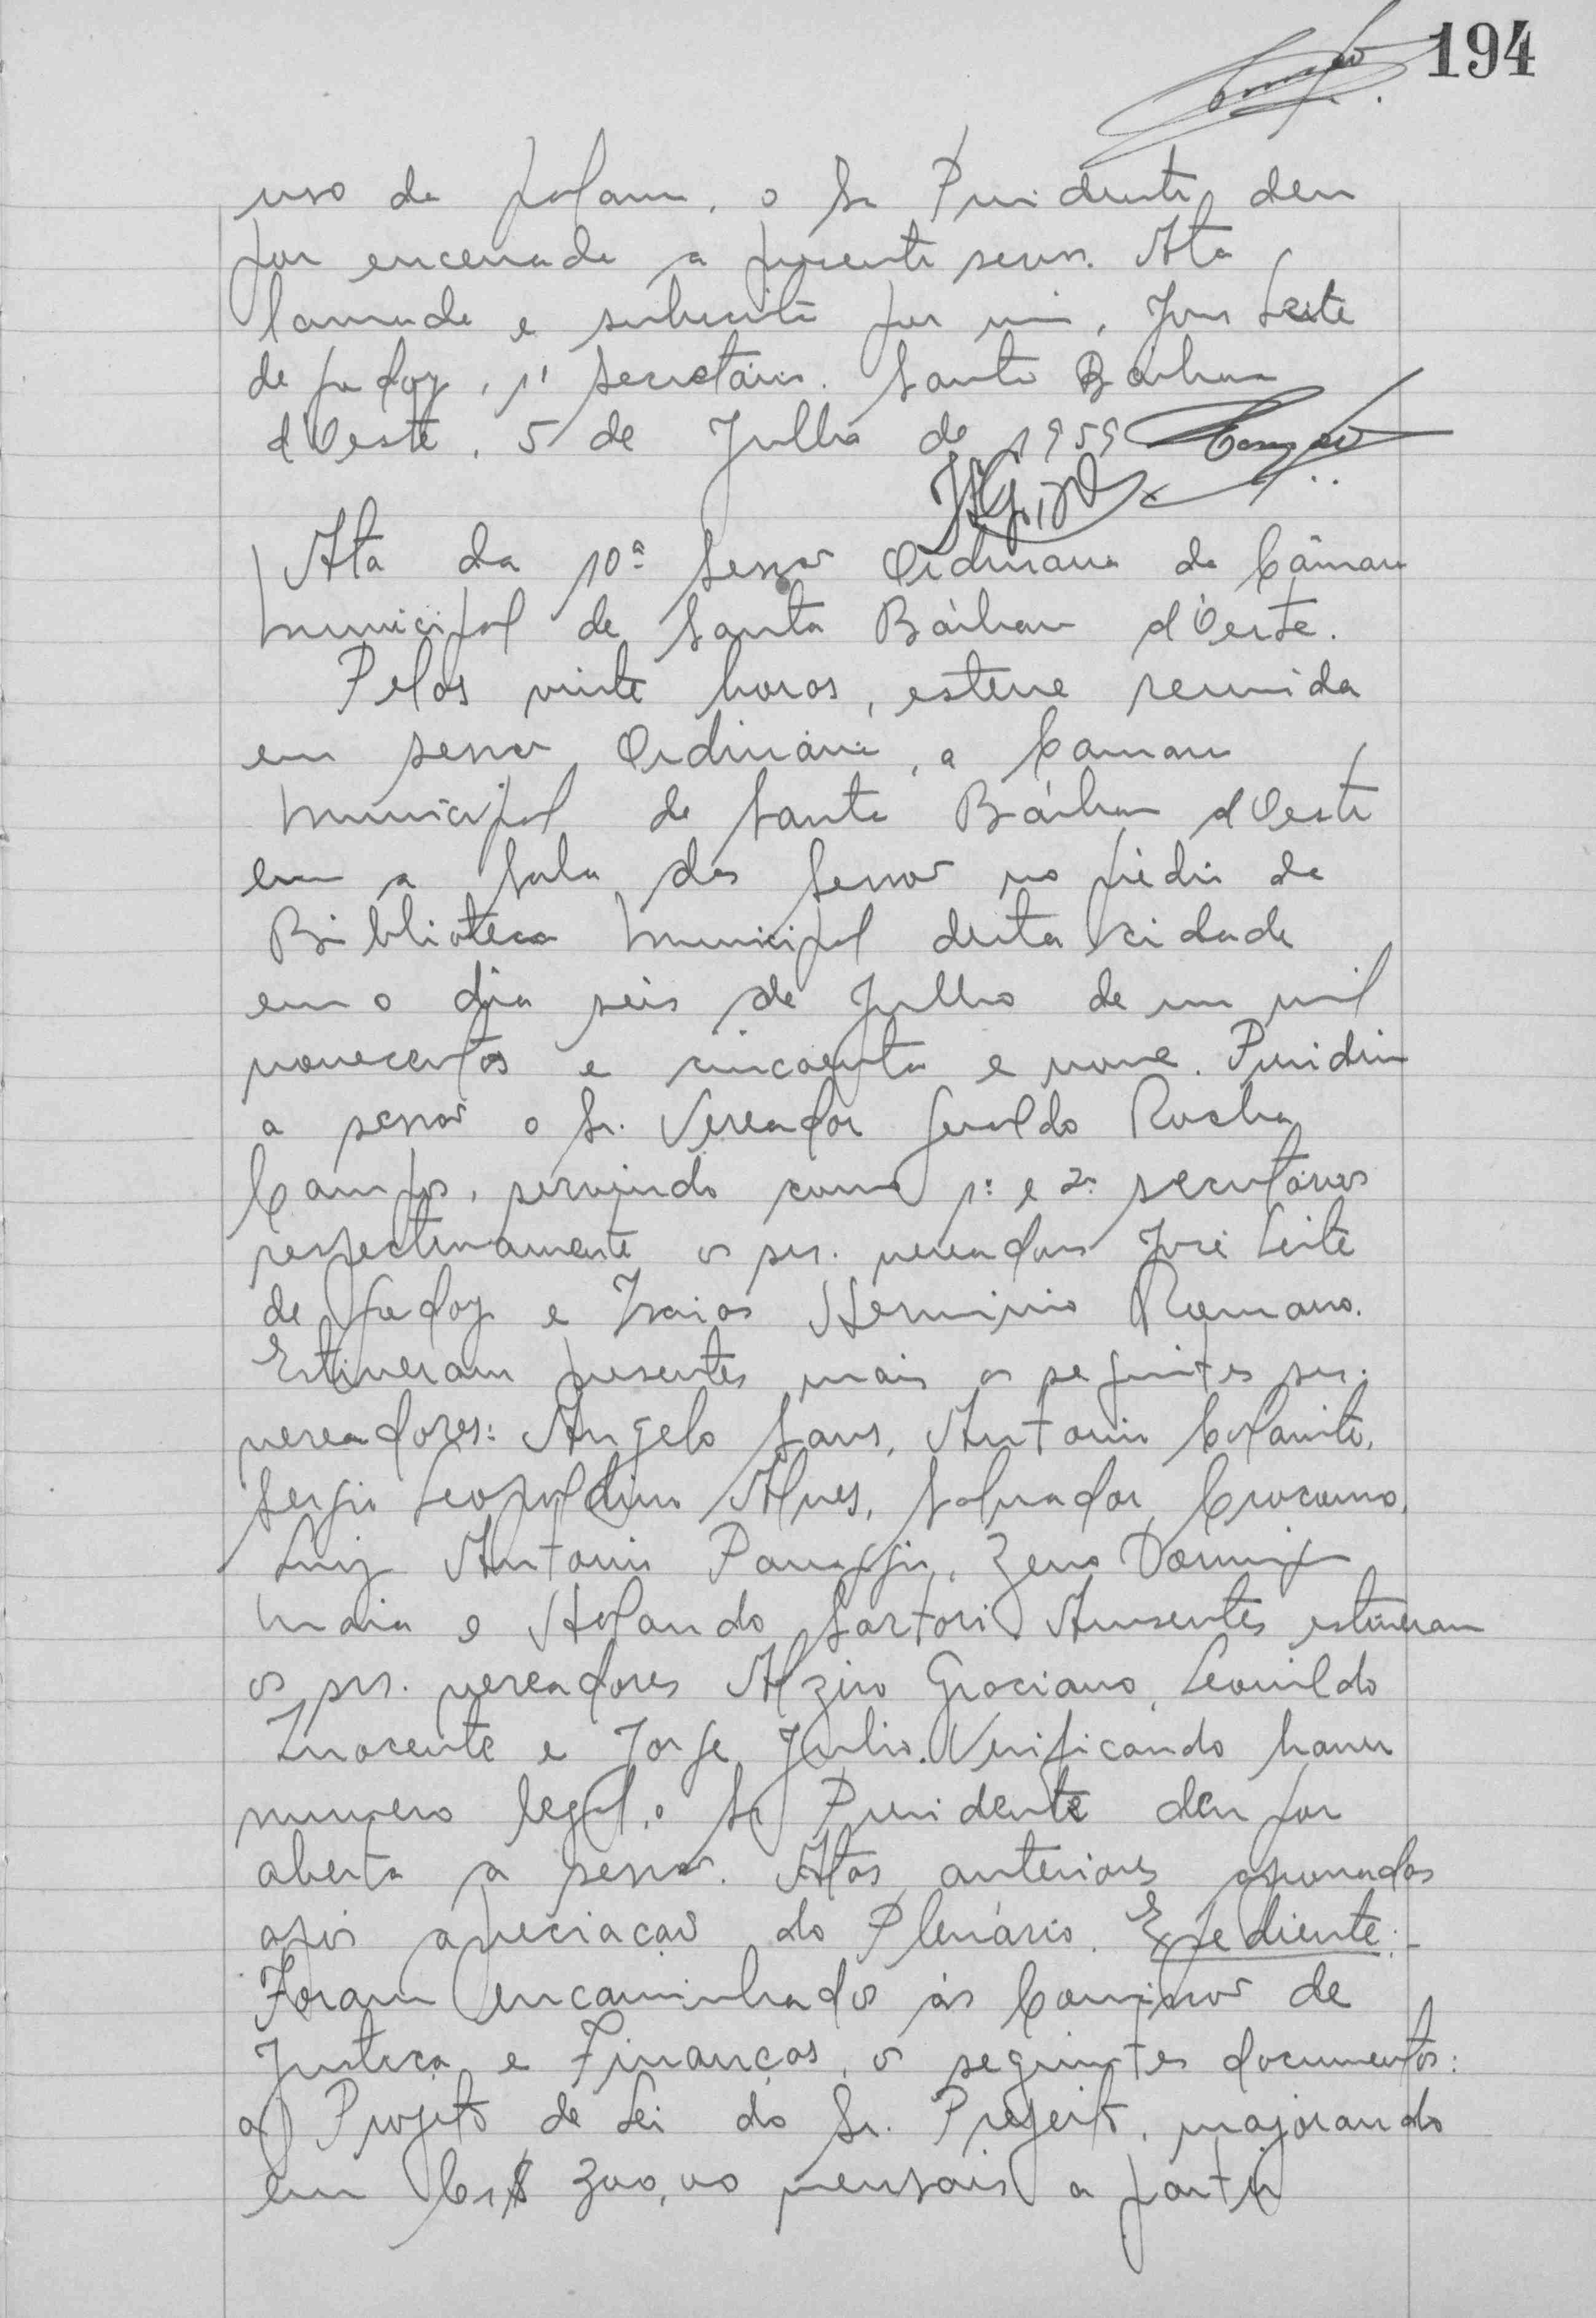 194
uso da palavra, o Sr Presidente deu
por encerrada a presente sessão. Ata
lavrada e subscrita por mim, José Leite
de Godoy, 1º Secretário. Santa Bárbara
d'Oeste, 5 de Julho de 1959
Ata da 10ª Sessão Ordinaria da Câmara
Municipal de Santa Bárbara d'Oeste.
Pelas vinte horas, esteve reunida
em sessão Ordinária, a Camara
Municipal de Santa Bárbara d'Oeste
em a Sala das Sessões no prédio da
Biblioteca Municipal desta cidade
em o dia seis de Julho de um mil
novecentos e cincoenta e nove. Presidiu
a sessão o Sr. Vereador Geraldo Rocha
Campos, servindo como 1º e 2º secretários
respectivamente os srs. vereadores José Leite
de Godoy e Isaias Herminio Romano.
Estiveram presentes mais os seguintes srs.
vereadores: Angelo Sans, Antonio
Sergio Leopoldino Alves, Salvador Crocomo,
Luiz Antonio Panaggio, Zeno Domingos
Maia e Holando Sartori. Ausentes estiveram
os srs. vereadores Alziro Graciano, Leonildo
Inocente e Jorge Julio. Verificando haver
numero legal, o Sr Presidente deu por
aberta a sessão. Atas anteriores aprovadas
após apreciação do Plenário. Expediente:-
Foram encaminhados às Comissões de
Justiça e Finanças, os seguintes documentos:
a) Projeto de Lei do Sr. Prefeito, majorando
em Cr$ 300,00 mensais a partir